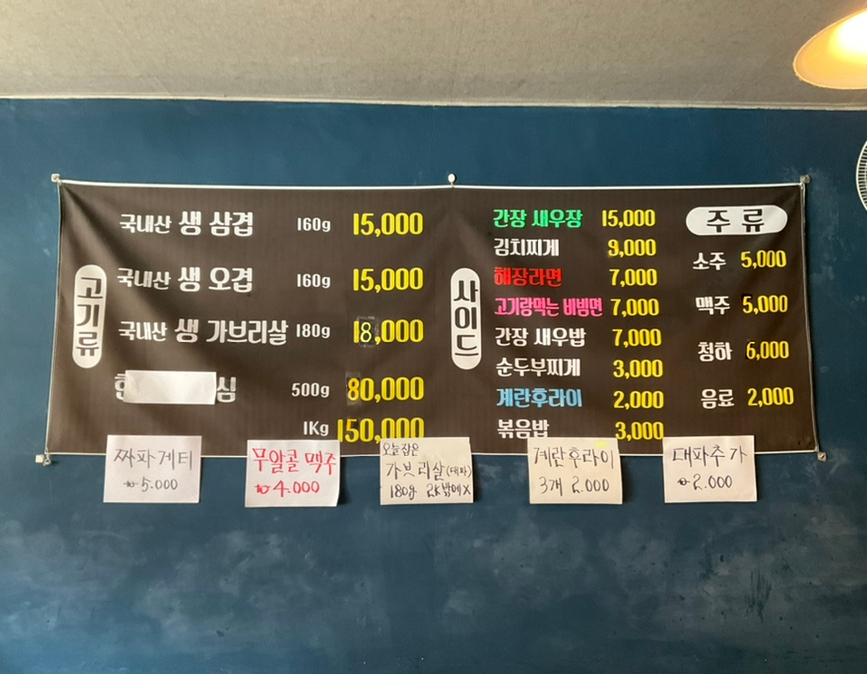 고기류
국내산 생 삼겹 160g 15,000
국내산 생 오겹 160g 15,000
국내산 생 가브리살 180g 18,000
심 500g 80,000
1Kg 150,000
사이드
간장 새우장 15,000
김치찌개 9,000
해장라면 7,000
고기랑먹는 비빔면 7,000
간장 새우밥 7,000
순두부찌개 3,000
계란후라이 2,000
볶음밥 3,000
주류
소주 5,000
맥주 5,000
청하 6,000
음료 2,000
짜파게티
₩5.000
무알콜 맥주
₩4.000
오늘잡은
가브리살(대파)
180g 2k밖에X
계란후라이
3개 2.000
대파추가
₩2.000